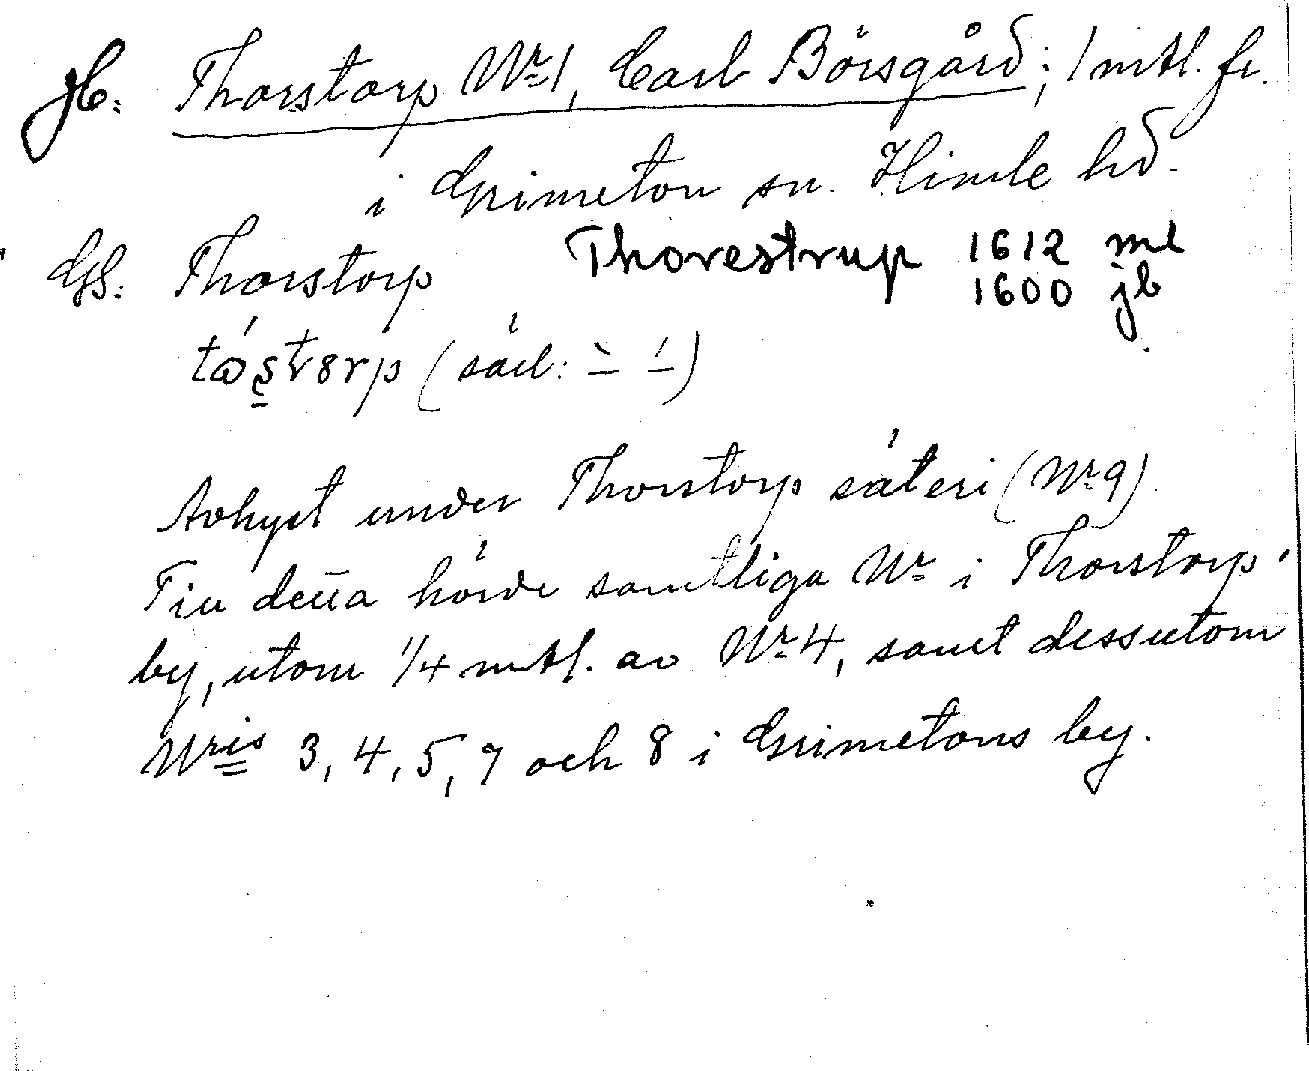 jb: Thorstorp Nr 1, Carl Börsgård; 1 mtl. fr.
i Grimeton sn. Himle hd.
GS: Thorstorp Thorestrup 1612 ml
1600 jb
(säll: ` ´)
Avhyst under Thorstorp säteri (Nr 9).
Till detta hörde samtliga Nr i Thorstorp
by, utom 1/4 mtl. av Nr 4, samt dessutom
Nris 3, 4, 5, 7 och 8 i Grimetons by.